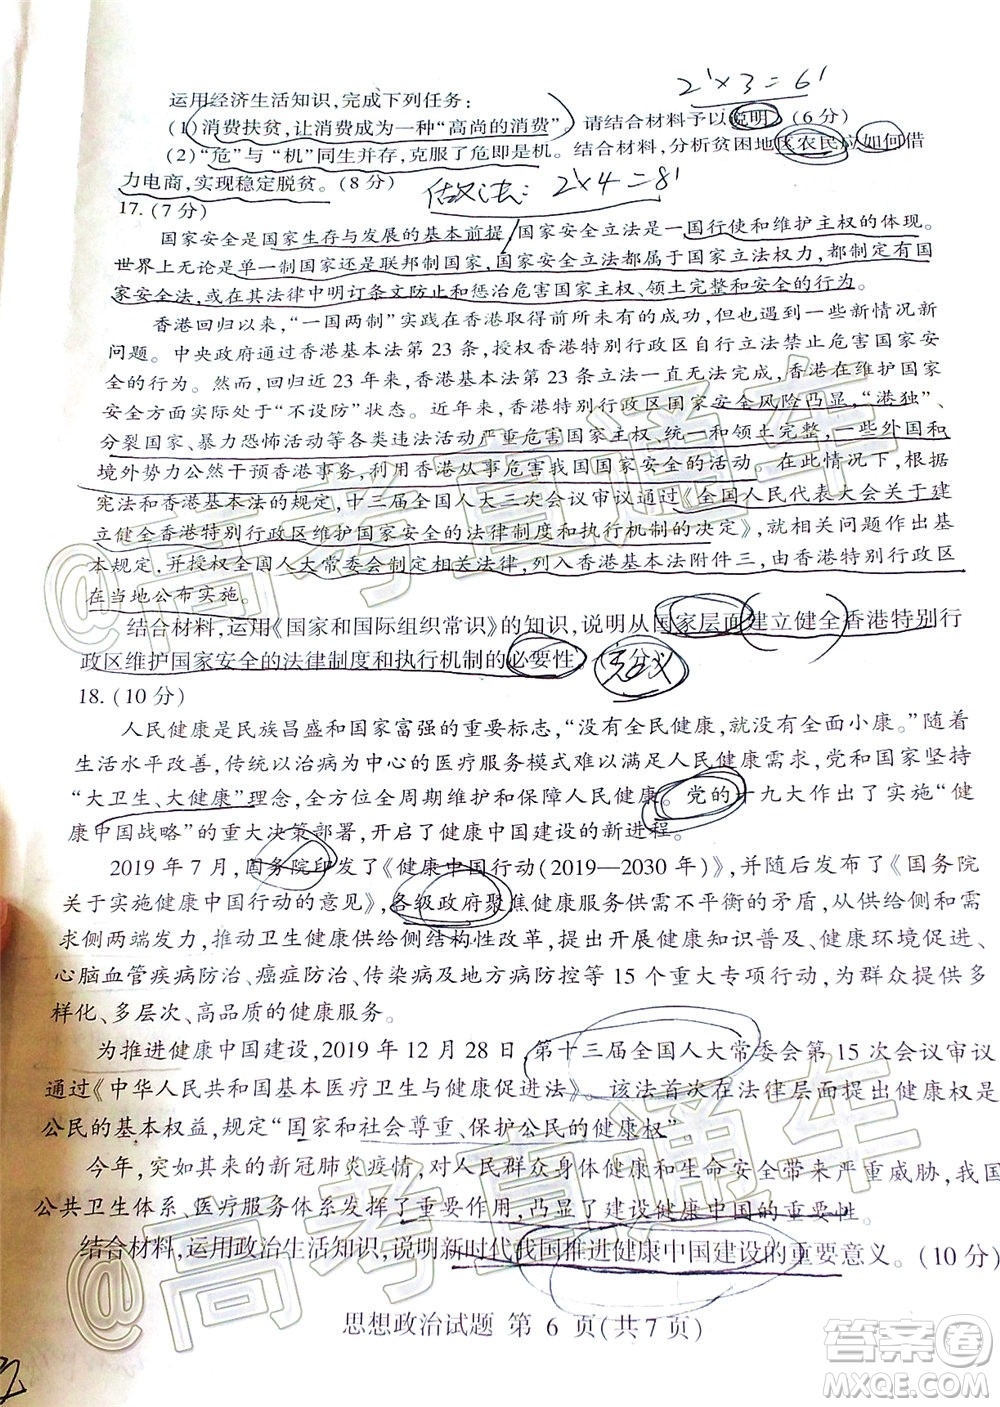 2'×3=6'
运用经济生活知识,完成下列任务:
(1)消费扶贫,让消费成为一种“高尚的消费”。请结合材料予以说明。(6分)
(2)“危”与“机”同生并存,克服了危即是机。结合材料,分析贫困地区农民应如何借
力电商,实现稳定脱贫。(8分)
做法: 2'×4=8'
17.(7分)
国家安全是国家生存与发展的基本前提,国家安全立法是一国行使和维护主权的体现。
世界上无论是单一制国家还是联邦制国家,国家安全立法都属于国家立法权力,都制定有国
家安全法,或在其法律中明订条文防止和惩治危害国家主权、领土完整和安全的行为。
香港回归以来,“一国两制”实践在香港取得前所未有的成功,但也遇到一些新情况新
问题。中央政府通过香港基本法第23条,授权香港特别行政区自行立法禁止危害国家安
全的行为。然而,回归近23年来,香港基本法第23条立法一直无法完成,香港在维护国家
安全方面实际处于“不设防”状态。近年来,香港特别行政区国家安全风险凸显,“港独”、
分裂国家、暴力恐怖活动等各类违法活动严重危害国家主权、统一和领土完整,一些外国和
境外势力公然干预香港事务,利用香港从事危害我国国家安全的活动。在此情况下,根据
宪法和香港基本法的规定,十三届全国人大三次会议审议通过《全国人民代表大会关于建
立健全香港特别行政区维护国家安全的法律制度和执行机制的决定》,就相关问题作出基
本规定,并授权全国人大常委会制定相关法律,列入香港基本法附件三,由香港特别行政区
在当地公布实施。
结合材料,运用《国家和国际组织常识》的知识,说明从国家层面建立健全香港特别行
政区维护国家安全的法律制度和执行机制的必要性。
意义
18.(10分)
人民健康是民族昌盛和国家富强的重要标志,“没有全民健康,就没有全面小康。”随着
生活水平改善,传统以治病为中心的医疗服务模式难以满足人民健康需求,党和国家坚持
“大卫生、大健康”理念,全方位全周期维护和保障人民健康。党的十九大作出了实施“健
康中国战略”的重大决策部署,开启了健康中国建设的新进程。
2019年7月,国务院印发了《健康中国行动(2019—2030年)》,并随后发布了《国务院
关于实施健康中国行动的意见》,各级政府聚焦健康服务供需不平衡的矛盾,从供给侧和需
求侧两端发力,推动卫生健康供给侧结构性改革,提出开展健康知识普及、健康环境促进、
心脑血管疾病防治、癌症防治、传染病及地方病防控等15个重大专项行动,为群众提供多
样化、多层次、高品质的健康服务。
为推进健康中国建设,2019年12月28日,第十三届全国人大常委会第15次会议审议
通过《中华人民共和国基本医疗卫生与健康促进法》。该法首次在法律层面提出健康权是
公民的基本权益,规定“国家和社会尊重、保护公民的健康权”
今年,突如其来的新冠肺炎疫情,对人民群众身体健康和生命安全带来严重威胁,我国
公共卫生体系、医疗服务体系发挥了重要作用,凸显了建设健康中国的重要性。
结合材料,运用政治生活知识,说明新时代我国推进健康中国建设的重要意义。(10分)
思想政治试题 第 6 页(共7页)
@高考直通车
@高考直通车
答案圈
MXQE.COM